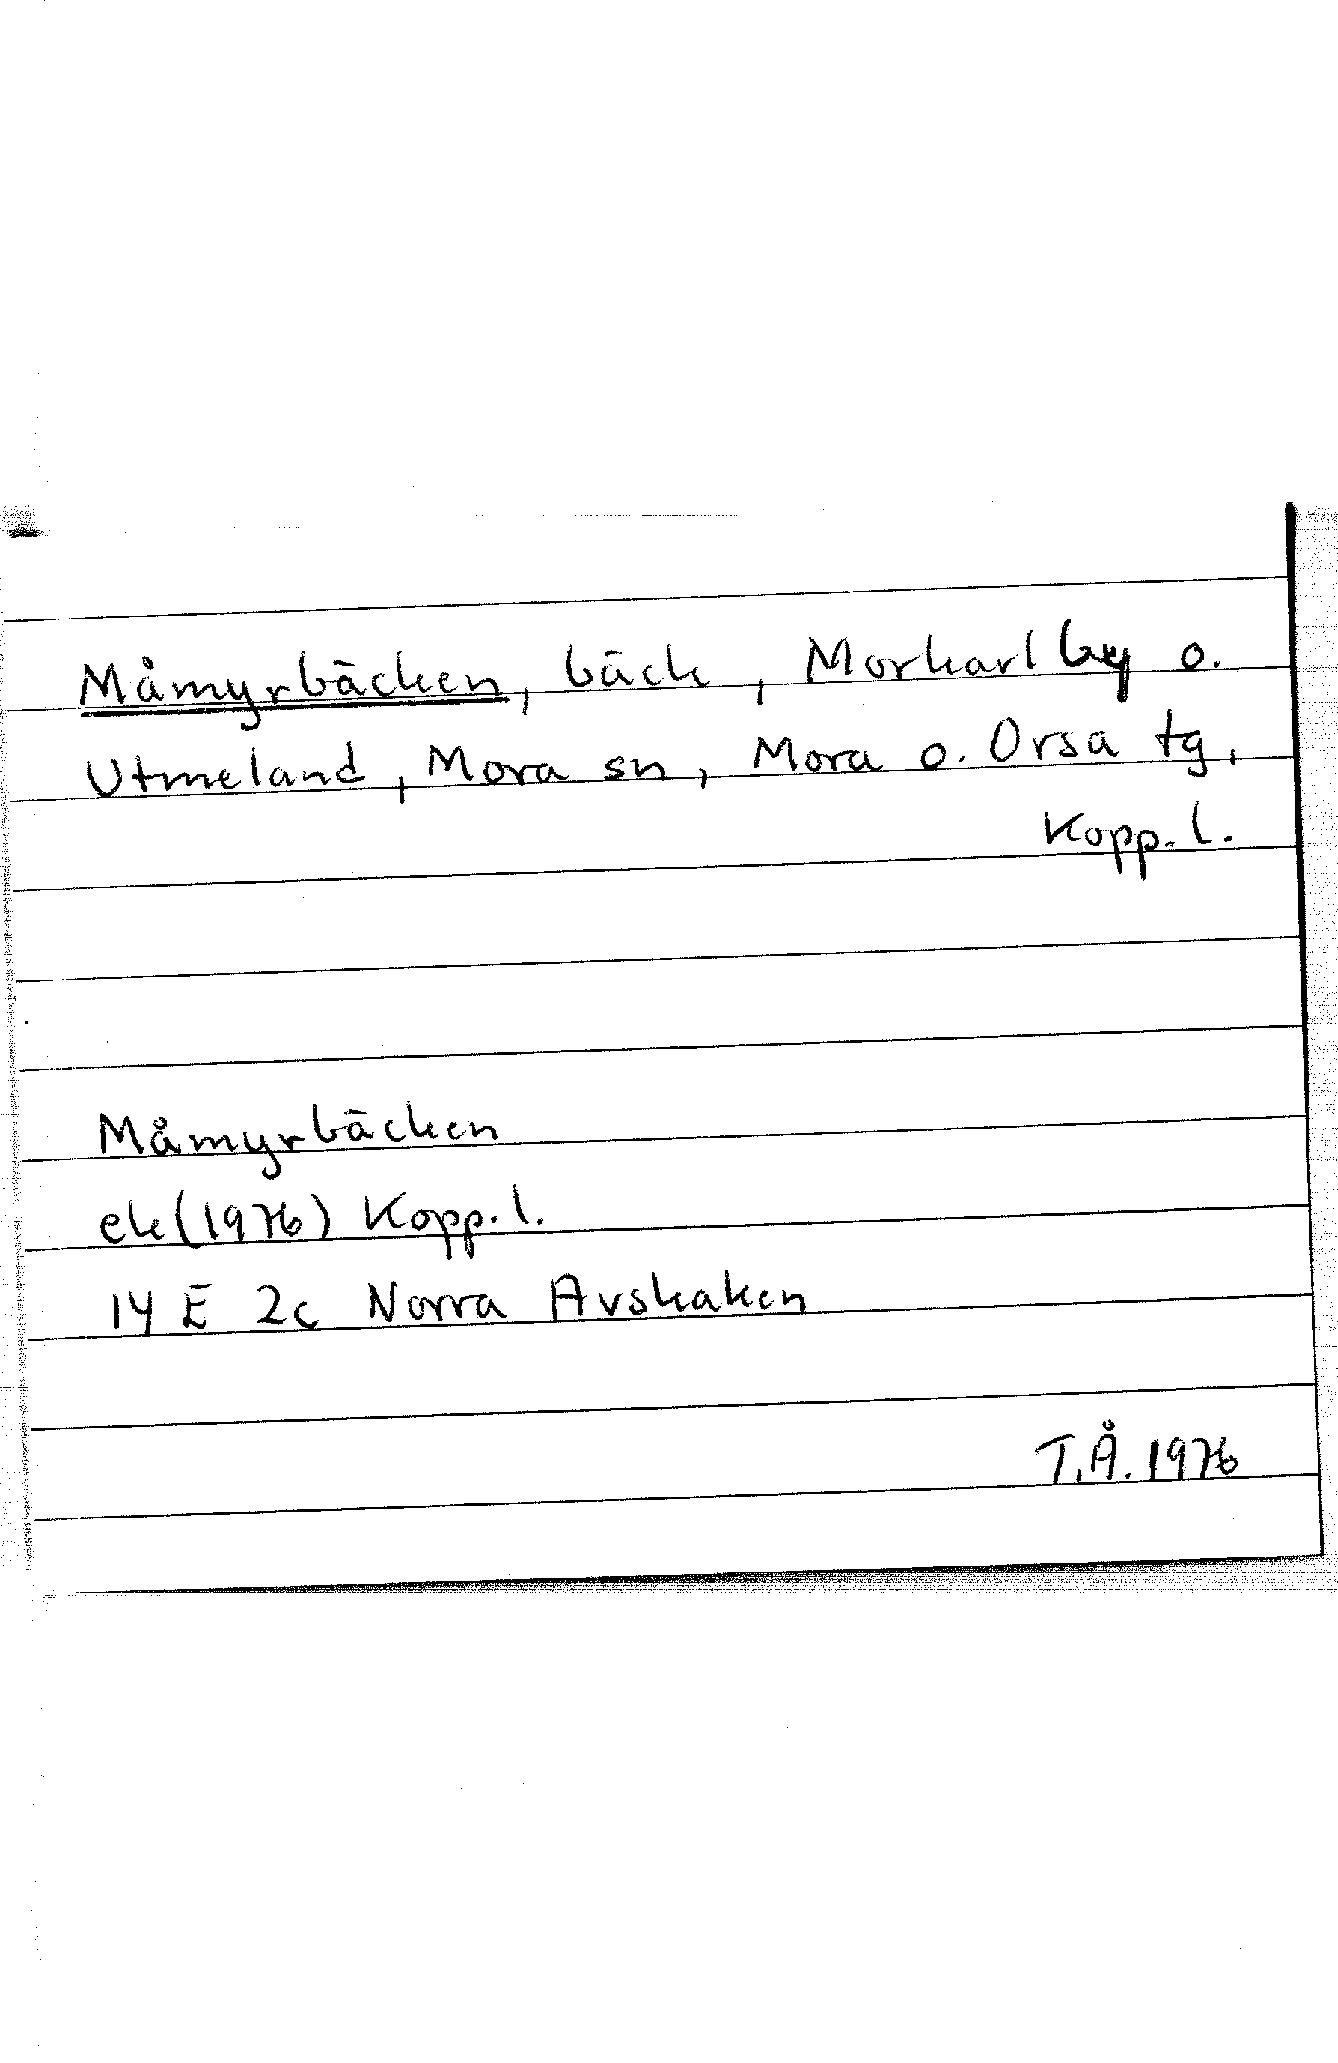 Måmyrbäcken, bäck, Morkarlby o.
Utmeland, Mora sn, Mora o. Orsa tg,
Kopp. l.
Måmyrbäcken
ek (1976) Kopp. l.
14 E 2c Norra Avskaken
T.Å. 1976